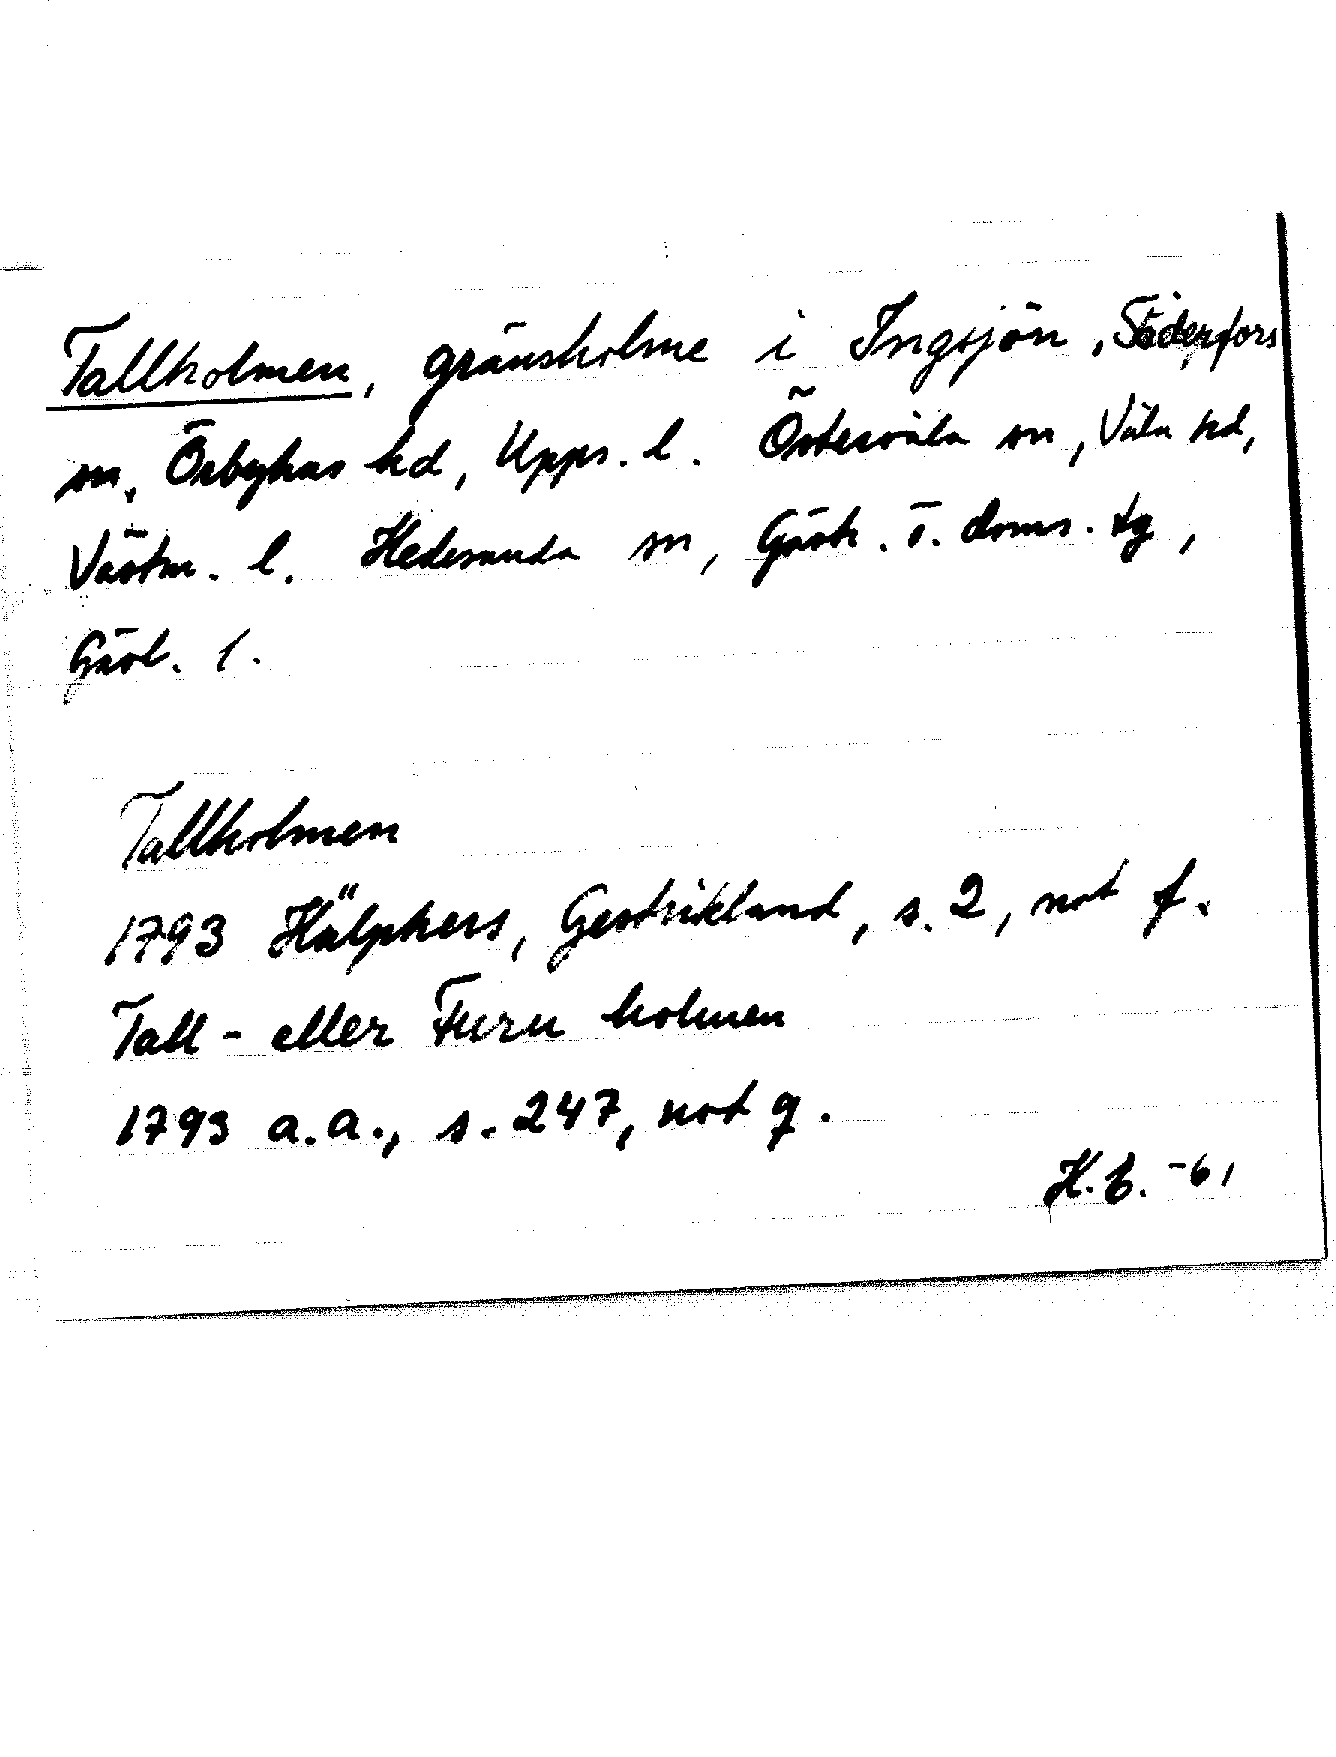 Tallholmen, gränsholme i Ingsjön, Söderfors
sn, Örbyhus hd, Upps. l. Östervåla sn, Våla hd,
Västm. l. Hedesunda sn, Gästr. ö. doms. tg,
Gävl. l.
Tallholmen
1793 Hülphers, Gestrikland, s. 2, not f.
Tall- eller Furu holmen
1793 a.a., s. 247, not q.
H.E. -61